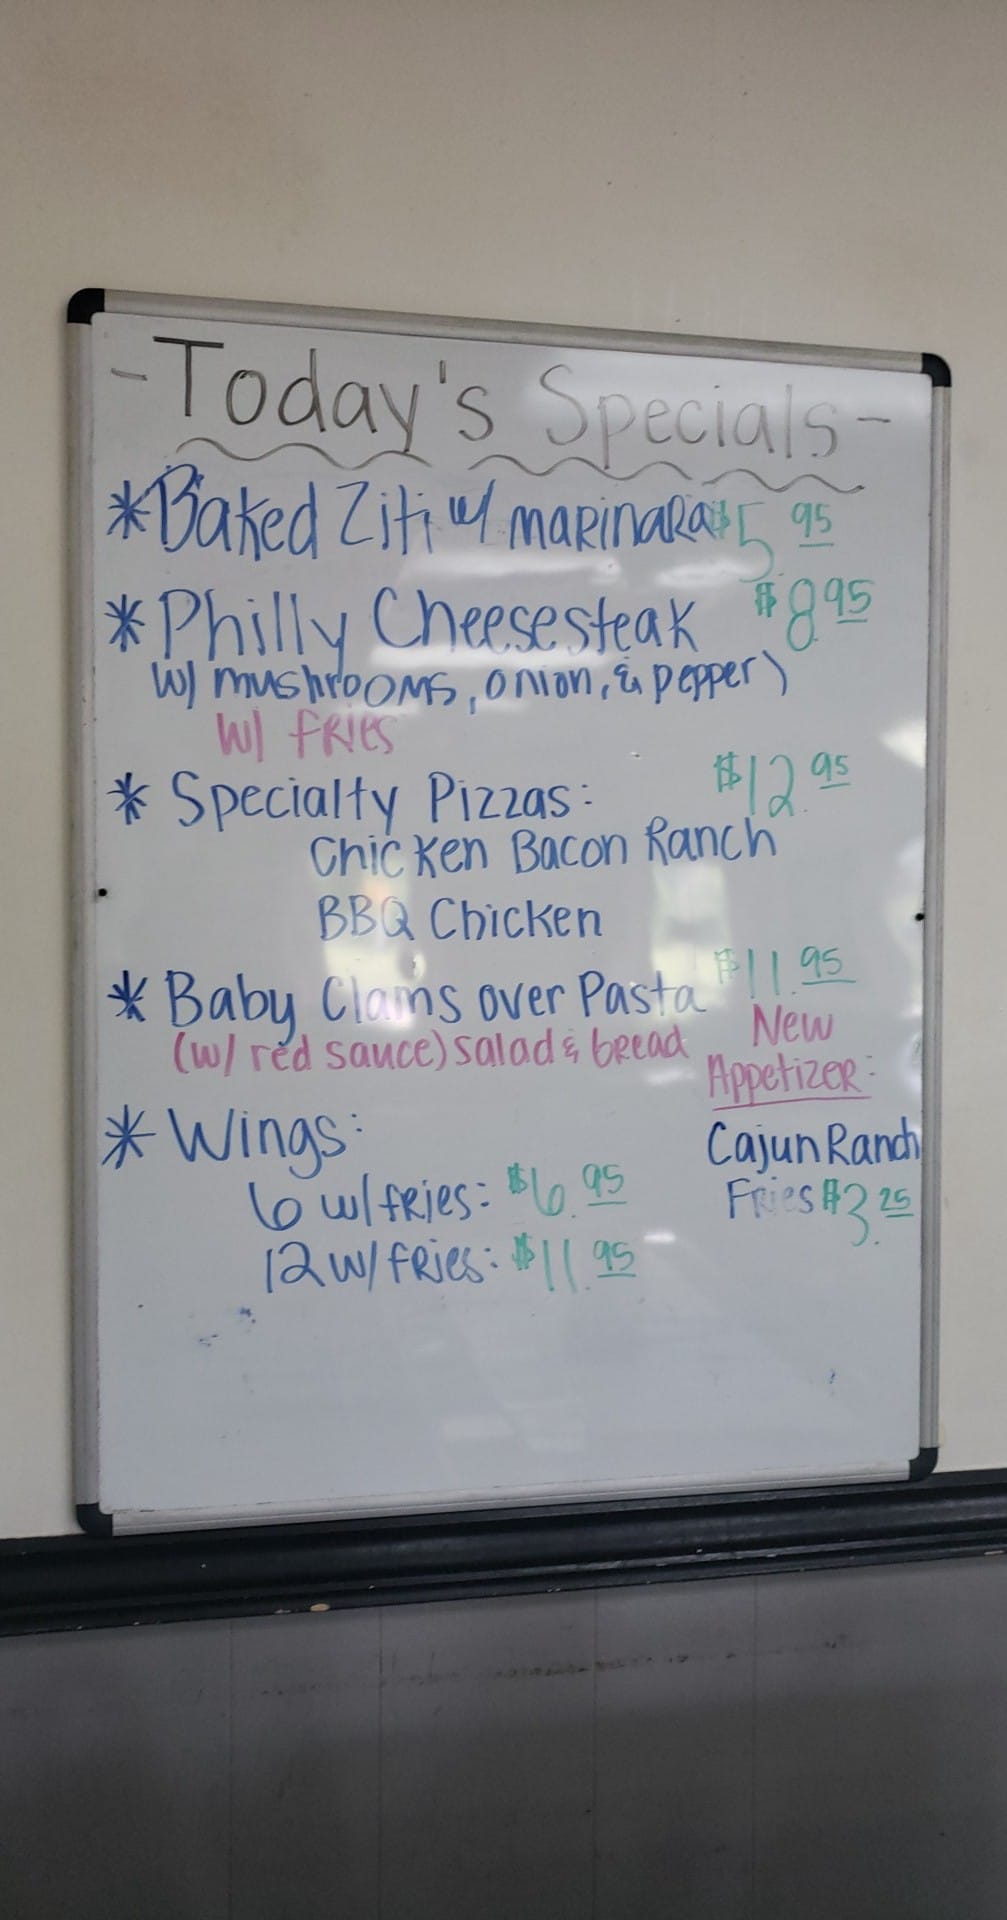 -Today's Specials-
*Baked Ziti w/ marinara $5.95
*Philly Cheesesteak $8.95
w/ mushrooms, onion, & pepper)
w/ fries
* Specialty Pizzas: $12.95
Chicken Bacon Ranch
BBQ Chicken
* Baby Clams over Pasta $11.95
(w/ red sauce) salad & bread
* Wings:
6 w/fries: $6.95
12 w/fries: $11.95
New
Appetizer:
Cajun Ranch
Fries $3.25